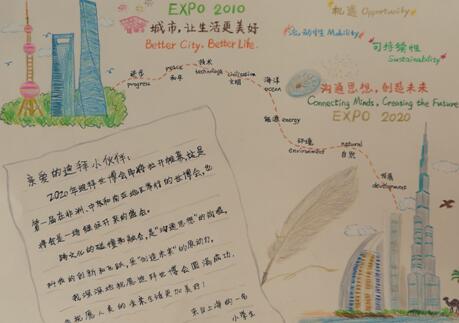 EXPO 2010
城市，让生活更美好
Better City, Better Life.
机遇 Opportunity
流动性 Mobility
可持续性
Sustainability
沟通思想，创造未来
Connecting Minds, Creating the Future
EXPO 2020
进步
progress
peace
和平
技术
technology
civilization
文明
海洋
ocean
能源 energy
环境
environment
natural
自然
发展
development
亲爱的迪拜小伙伴：
2020年迪拜世博会即将拉开帷幕，这是
第一届在非洲、中东和南亚地区举行的世博会，也
将会是一场缤纷开放的盛会。
跨文化的碰撞和融合，是“沟通思想”的
科技的创新和飞跃，是“创造未来”的原动力。
我深深地祝愿迪拜世博会圆满成功，
祝愿人类的未来生活更加美好！
来自上海的一名
小学生